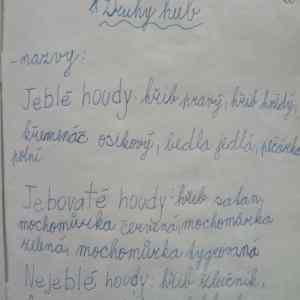 Druhy hub
- nazvy:
Jeblé houdy: hřib pravý, hřib hnědý,
křemenáč osikový, bedla jedlá, pečárka
polní
Jebovaté houdy: hřib satan,
mochomůrka červená, mochomůrka
zelená, mochomůrka tygrovaná
Nejeblé houdy: hřib žlučník,